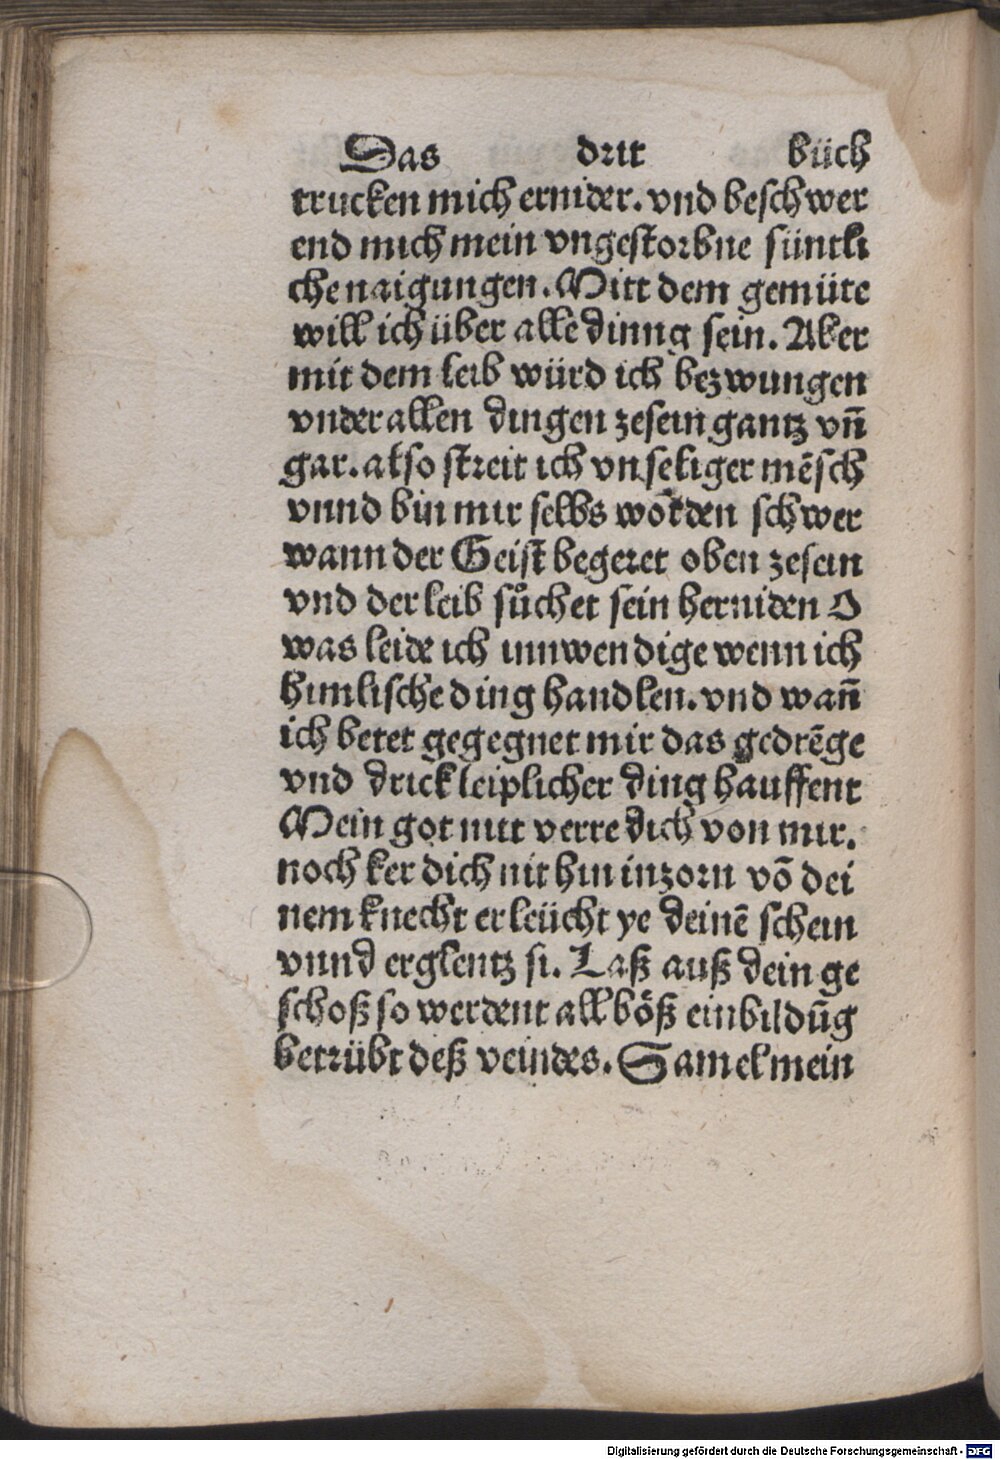 Das drit büch
trucken mich ernider. vnd beschwer
end mich mein vngestorbne süntli
che naigungen. Mitt dem gemüte
will ich über alle dinng sein. Aber
mit dem leib würd ich bezwungen
vnder allen dingen zesein gantz vñ
gar. also streit ich vnseliger mēsch
vnnd bin mir selbs worden schwer
wann der Geist begeret oben zesein
vnd der leib sůchet sein herniden O
was leide ich innwendige wenn ich
himlische ding handlen. vnd wañ
ich betet gegegnet mir das gedrēge
vnd drick leiplicher ding hauffent
Mein got nitt verre dich von mir.
noch ker dich nit hin inzorn vō dei
nem knecht erleücht ye deinē schein
vnnd erglentz si. Laß auß dein ge
schoß so werdent all böß einbildūg
betrübt deß veindes. Samel mein
Digitalisierung gefördert durch die Deutsche Forschungsgemeinschaft - DFG